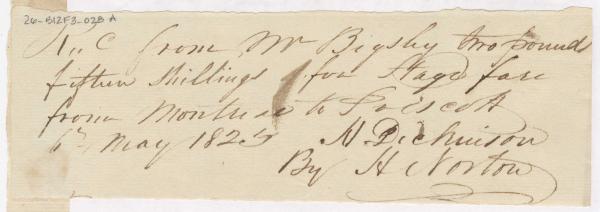 26-B12F3-02B A
Rec from Mr Bigsby two pounds
fifteen shillings for Stage fare
from Montreal to Prescott
6th May 1825 H Dickinson
By H Norton